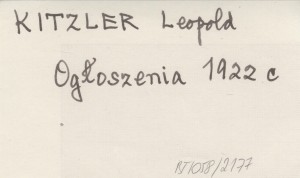 KITZLER Leopold
Ogłoszenia 1922 c
RT1058/2177